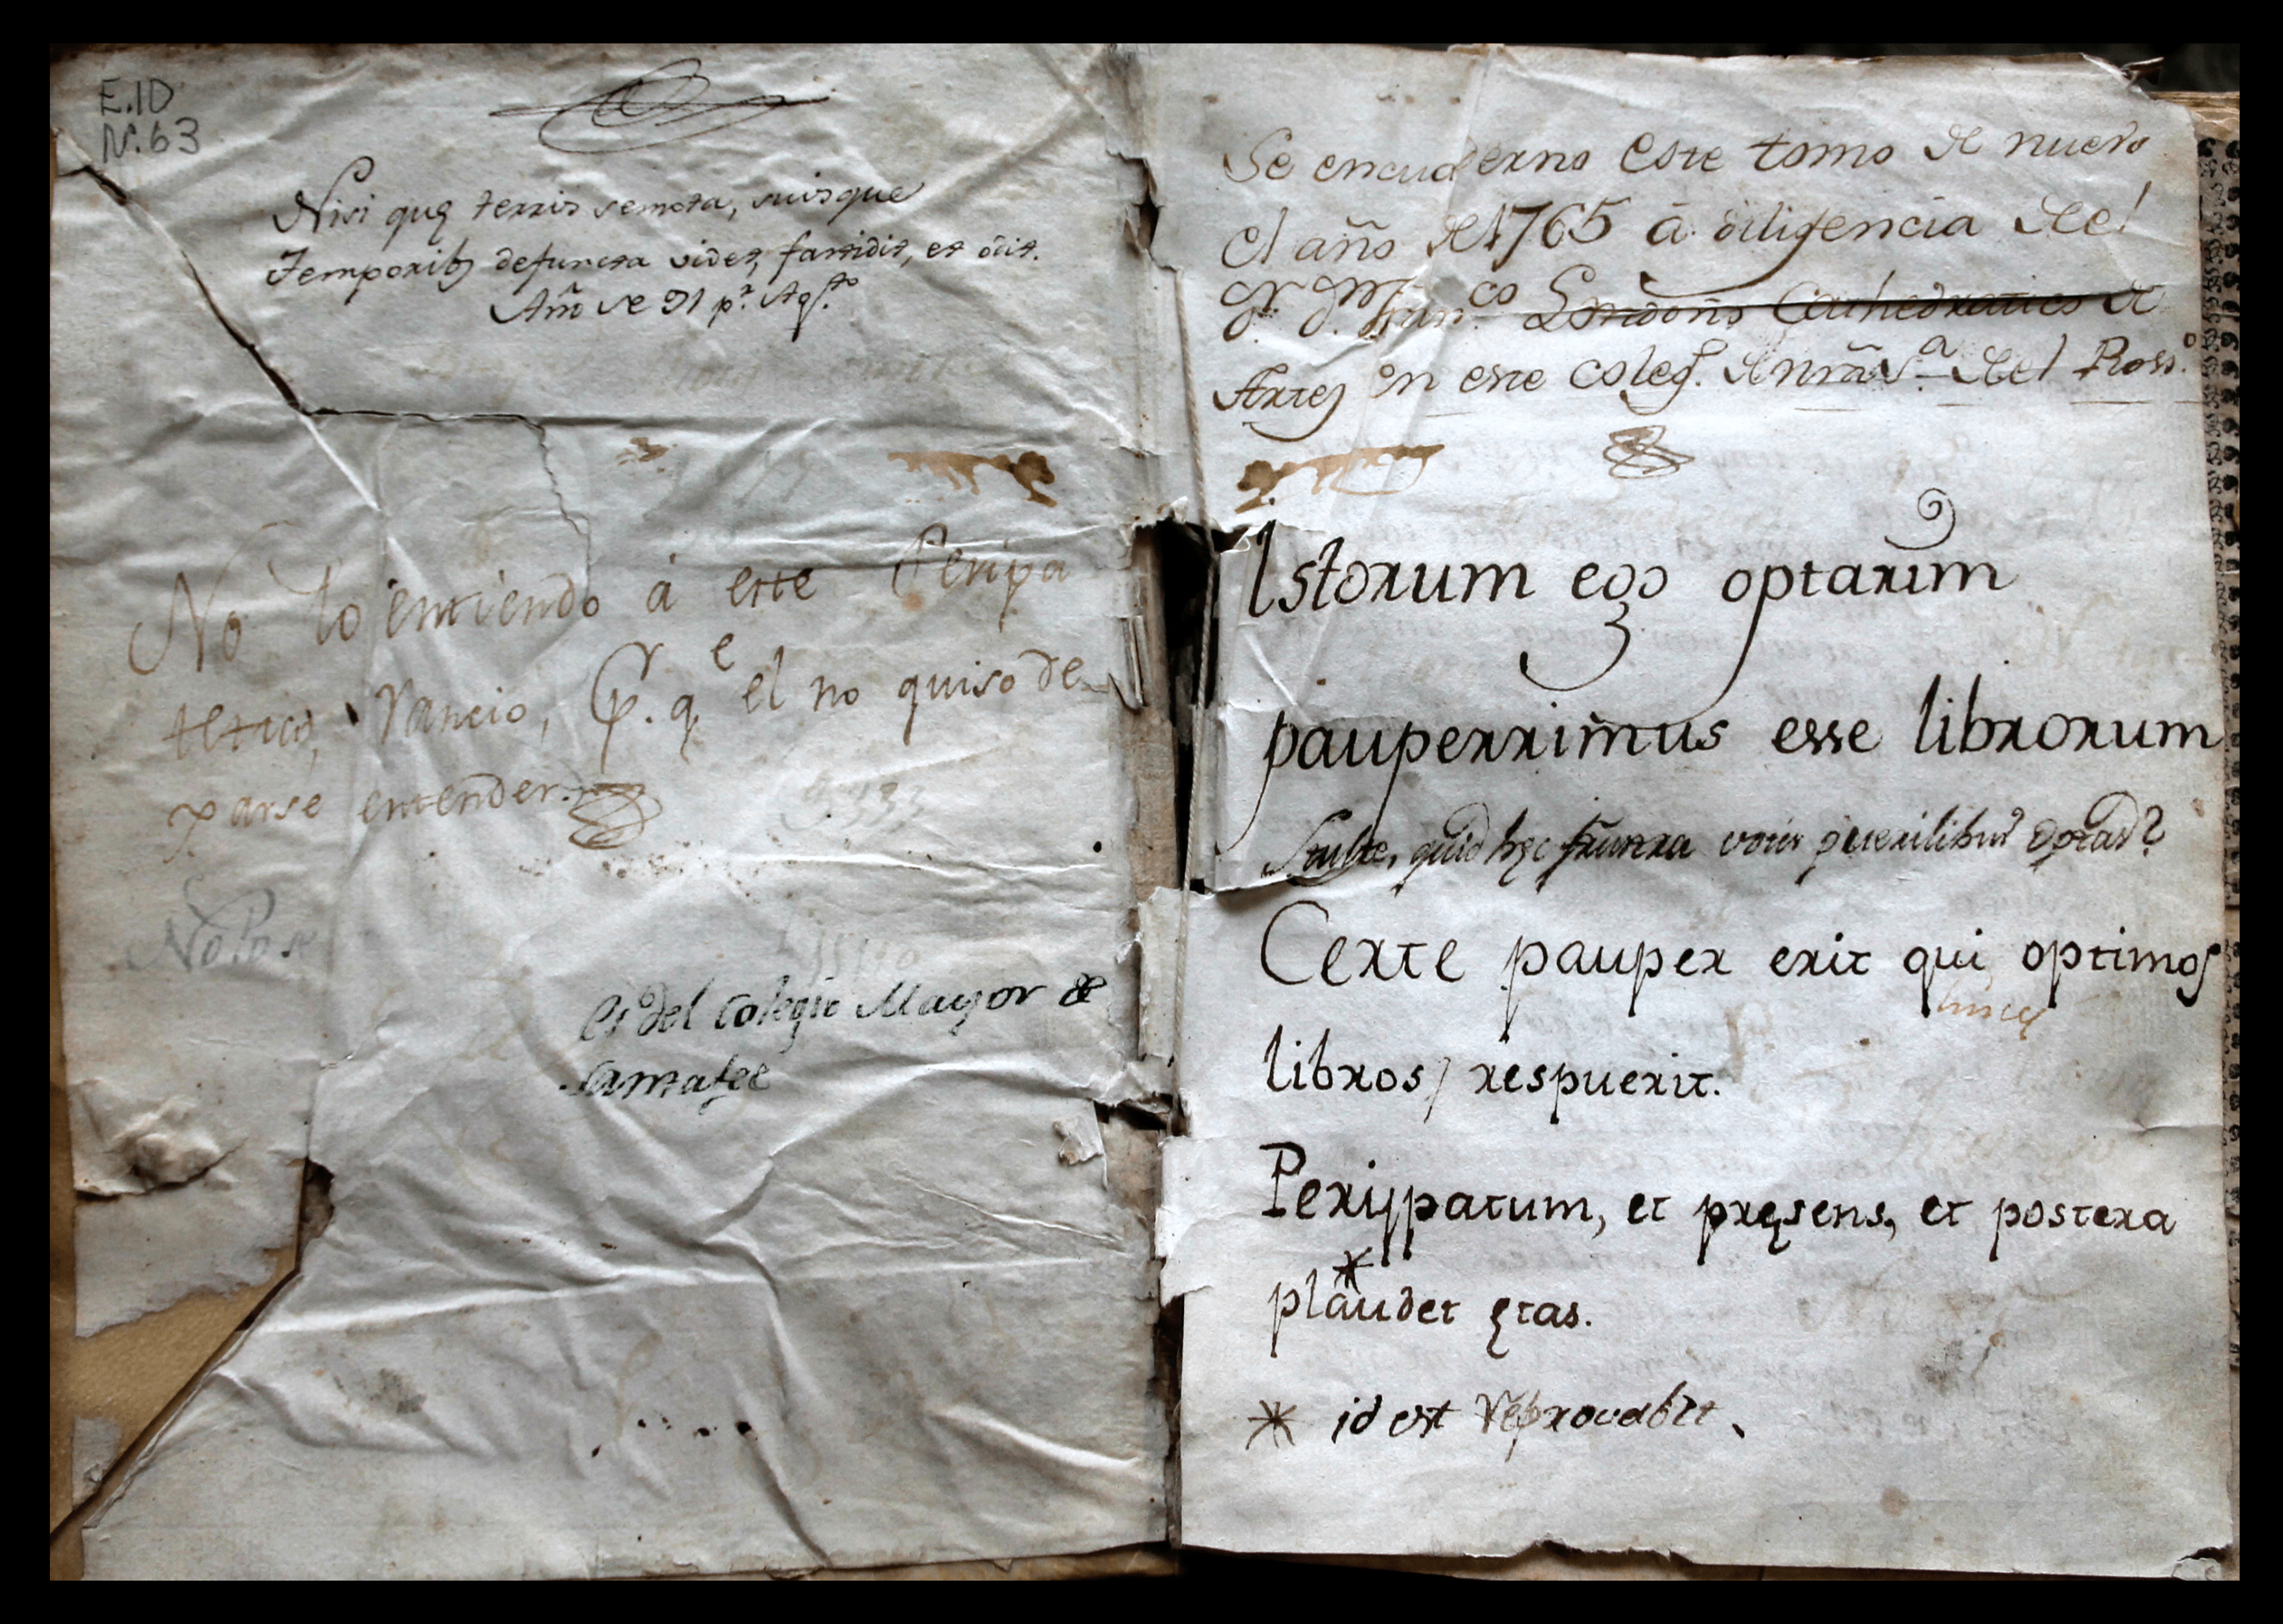 E.1D
N.63
Nisi quę terris semota, suisque
Temporib9 defuncta videt, fastidit, et odit.
Año de 91 pr. Agto.
No lo entiendo á este Peripa
tetico, Rancio, Pr. qe el no quiso de
parse entender.
No lo se
es del Colegio Mayor de
Santafee
Se encuaderno este tomo de nuevo
el año de 1765 â diligencia del
Dr. D. Franco Londoño Cathedratico de
Artes en este coleg. de Nrã Sa. del Rosso.
Istorum ego optarim
pauperrimus esse librorum
Stulte, quid hęc votis puerilibus optas?
Certe pauper erit qui optimos
hinc
libros/ respuerit.
Perijpatum, et pręsens, et postera
plaudet ętas.
* id est reprovabit.